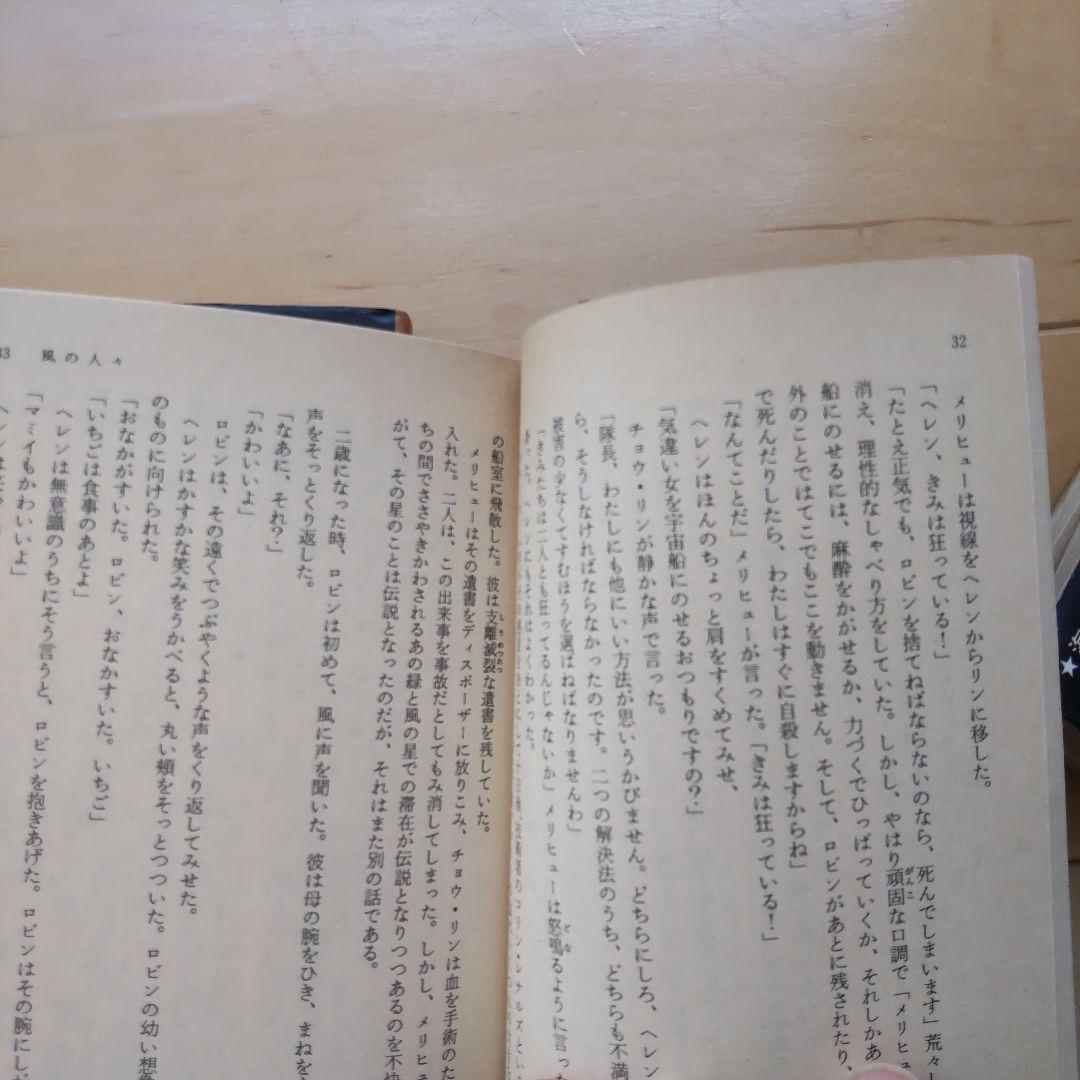 32
メリヒューは視線をヘレンからリンに移した。
「ヘレン、きみは狂っている!」
「たとえ正気でも、ロビンを捨てねばならないのなら、死んでしまいます」荒々し
消え、理性的なしゃべり方をしていた。しかし、やはり頑固な口調で「メリヒュ
船にのせるには、麻酔をかがせるか、力づくでひっぱっていくか、それしかあ
外のことではてこでもここを動きません。そして、ロビンがあとに残されたり、
で死んだりしたら、わたしはすぐに自殺しますからね」
「なんてことだ」メリヒューが言った。「きみは狂っている!」
ヘレンはほんのちょっと肩をすくめてみせ、
「気違い女を宇宙船にのせるおつもりですの?」
チョウ・リンが静かな声で言った。
「隊長、わたしにも他にいい方法が思いうかびません。どちらにしろ、ヘレン
ら、そうしなければならなかったのです。二つの解決法のうち、どちらも不満
被害の少なくてすむほうを選ばねばなりませんわ」
「きみたちは二人とも狂ってるんじゃないか」メリヒューは怒鳴るように言った
33 風の人々
の船室に飛散した。彼は支離滅裂な遺書を残していた。
メリヒューはその遺書をディスポーザーに放りこみ、チョウ・リンは血を手術のた
入れた。二人は、この出来事を事故だとしてもみ消してしまった。しかし、メリヒュ
ちの間でささやきかわされるあの緑と風の星での滞在が伝説となりつつあるのを不快
がて、その星のことは伝説となったのだが、それはまた別の話である。
二歳になった時、ロビンは初めて、風に声を聞いた。彼は母の腕をひき、まねを
声をそっとくり返した。
「なあに、それ?」
「かわいいよ」
ロビンは、その遠くでつぶやくような声をくり返してみせた。
ヘレンはかすかな笑みをうかべると、丸い頬をそっとつついた。ロビンの幼い想像
のものに向けられた。
「おなかがすいた。ロビン、おなかすいた。いちご」
「いちごは食事のあとよ」
ヘレンは無意識のうちにそう言うと、ロビンを抱きあげた。ロビンはその腕にしが
「マミイもかわいいよ」